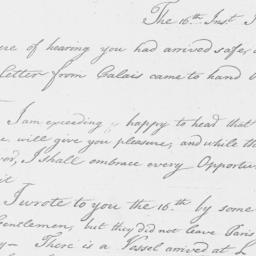 The 16th Inst. I
ure of hearing you had arrived safe
Letter from Calais came to hand
I am exceeding happy to head that
will give you pleasure, and while th
I shall embrace every Opportun
it
I wrote to you the 16th by some
Gentlemen, but they did not leave Paris
There is a Vessel arrived at L